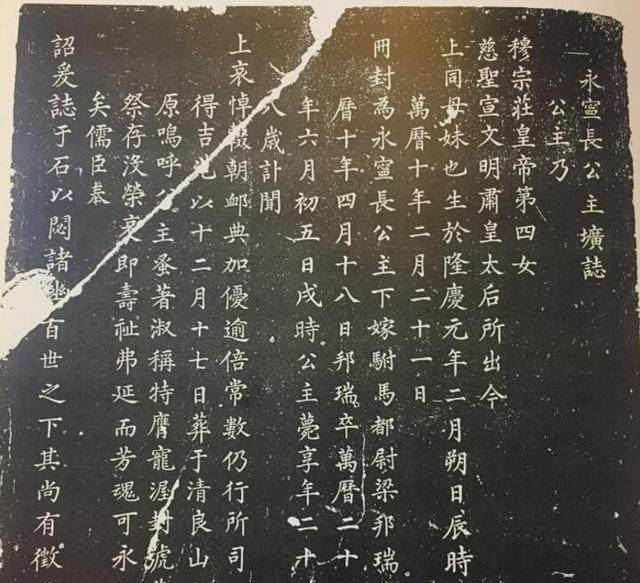 永寧長公主壙誌
公主乃
穆宗莊皇帝第四女
慈聖宣文明肅皇太后所出今
上同母妹也生於隆慶元年二月朔日辰時
萬曆十年二月二十一日
冊封為永寧長公主下嫁駙馬都尉梁邦瑞
曆十年四月十八日邦瑞卒萬曆二十
年六月初五日戌時公主薨享年二十
八歲訃聞
上哀悼輟朝卹典加優逾倍常數仍行所司
得吉以十二月十七日葬于清良山
原嗚呼公主蚤著淑稱特膺寵渥封號
祭存沒榮哀即壽祉弗延而芳魂可永
矣儒臣奉
詔爰誌于石以閟諸幽百世之下其尚有徵